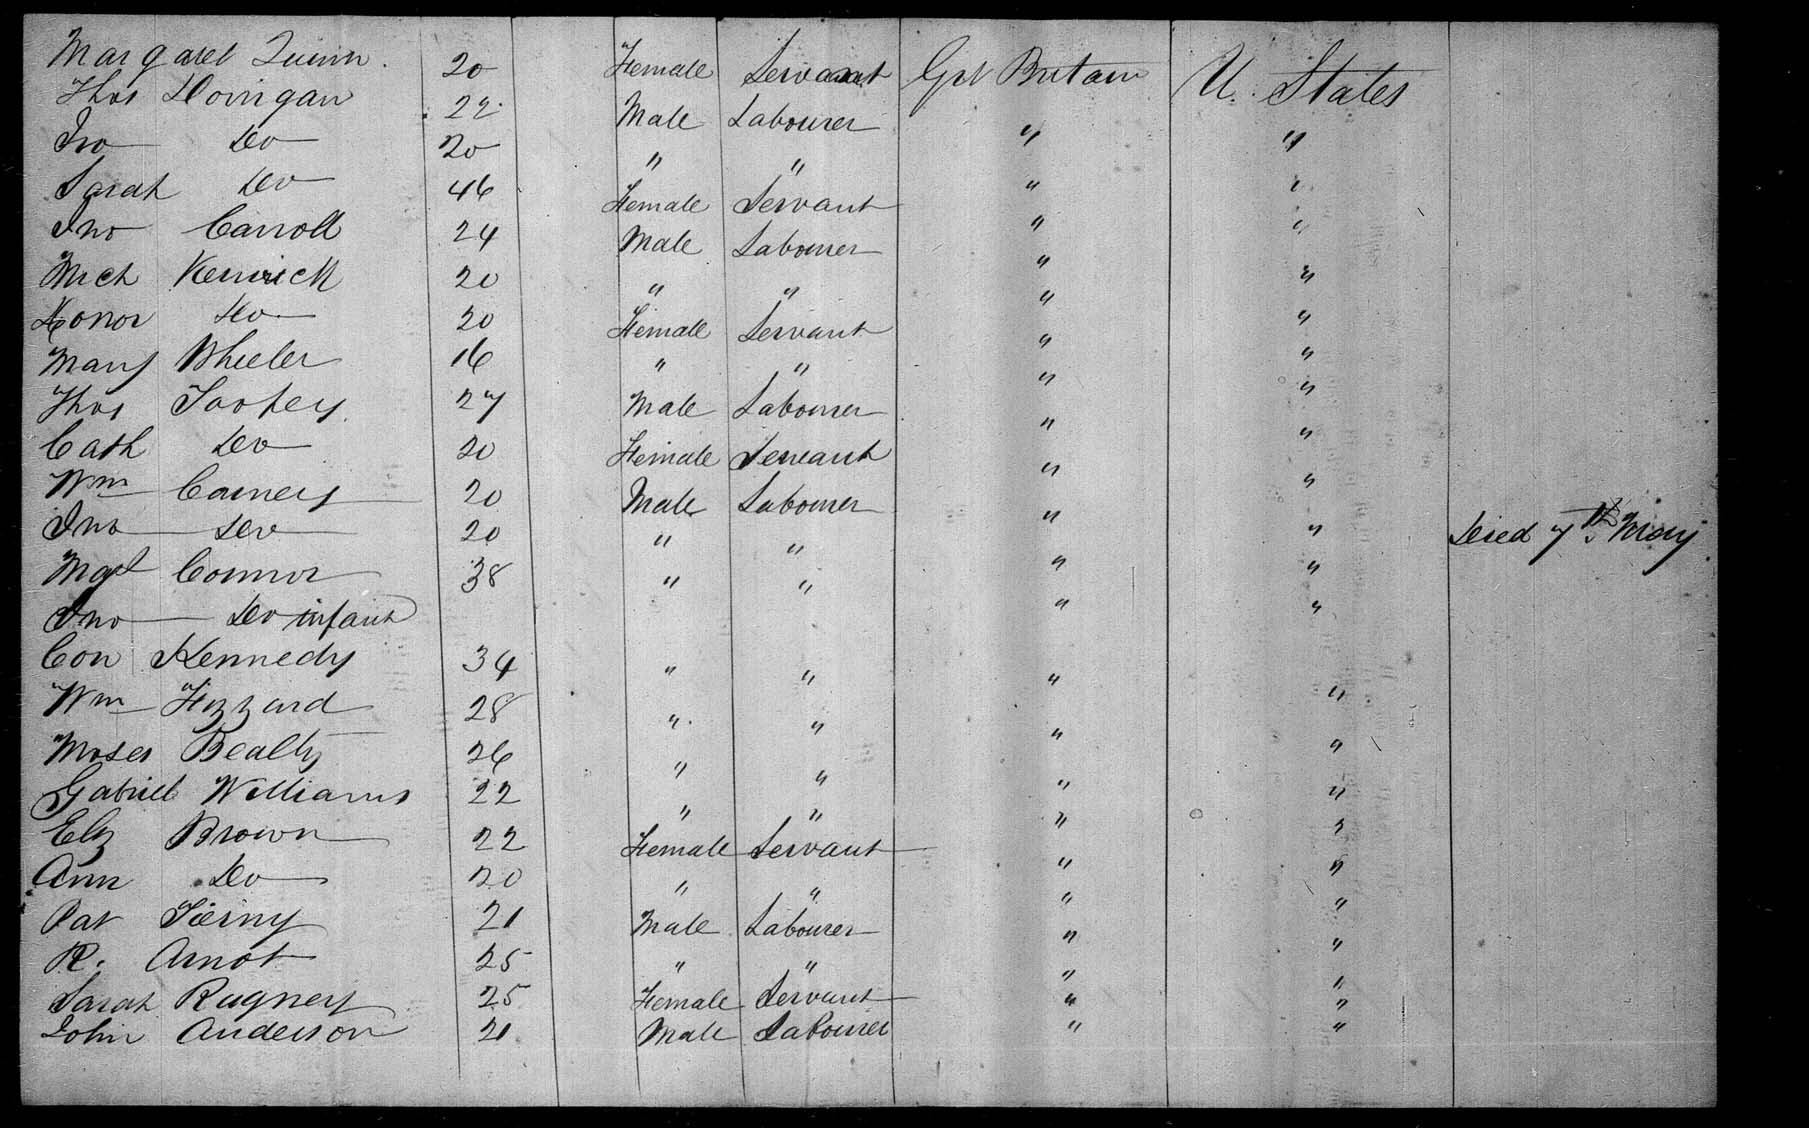 Margaret Quinn. 20 Female Servant Grt Britain U. States
Thos Donigan 22 Male Labourer " "
Jno Do 20 " " " "
Sarah Do 46 Female Servant " "
Jno Carroll 24 Male Labourer " "
Mich Kenrick 20 " " " "
Honor Do 20 Female Servant " "
Mary Wheeler 16 " " " "
Thos Toohey 27 Male Labourer " "
Cath Do 20 Female Servant " "
Wm Carney 20 Male Labourer " "
Jno Do 20 " " " " Died 7th May
Mgt Connor 38 " " " "
Jno Do infant " "
Con Kennedy 34 " " " "
Wm Hizzard 28 " " " "
Moses Bealty 26 " " " "
Gabriel Williams 22 " " " "
Elz Brown 22 Female Servant " "
Ann Do 20 " " " "
Pat Tierny 21 Male Labourer " "
R. Arnot 25 " " " "
Sarah Rugney 25 Female Servant " "
John Anderson 21 Male Labourer " "